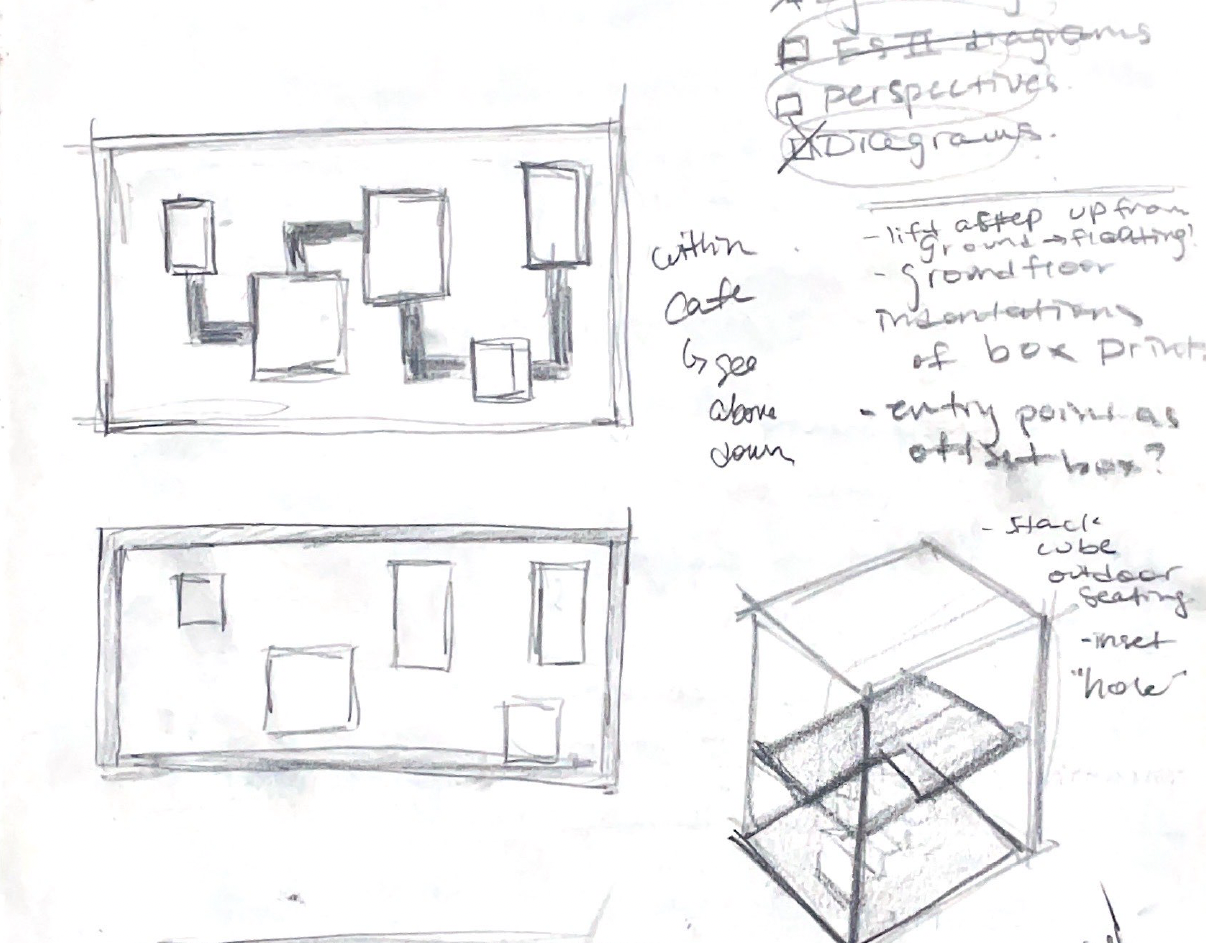 diagrams
perspectives.
Diagrams.
- lift a step up from
ground → floating!
- ground floor
indentations
of box prints
- entry point as
offset box?
within
cafe
↳ see
above
down
- stack
cube
outdoor
seating
- inset
"hole"